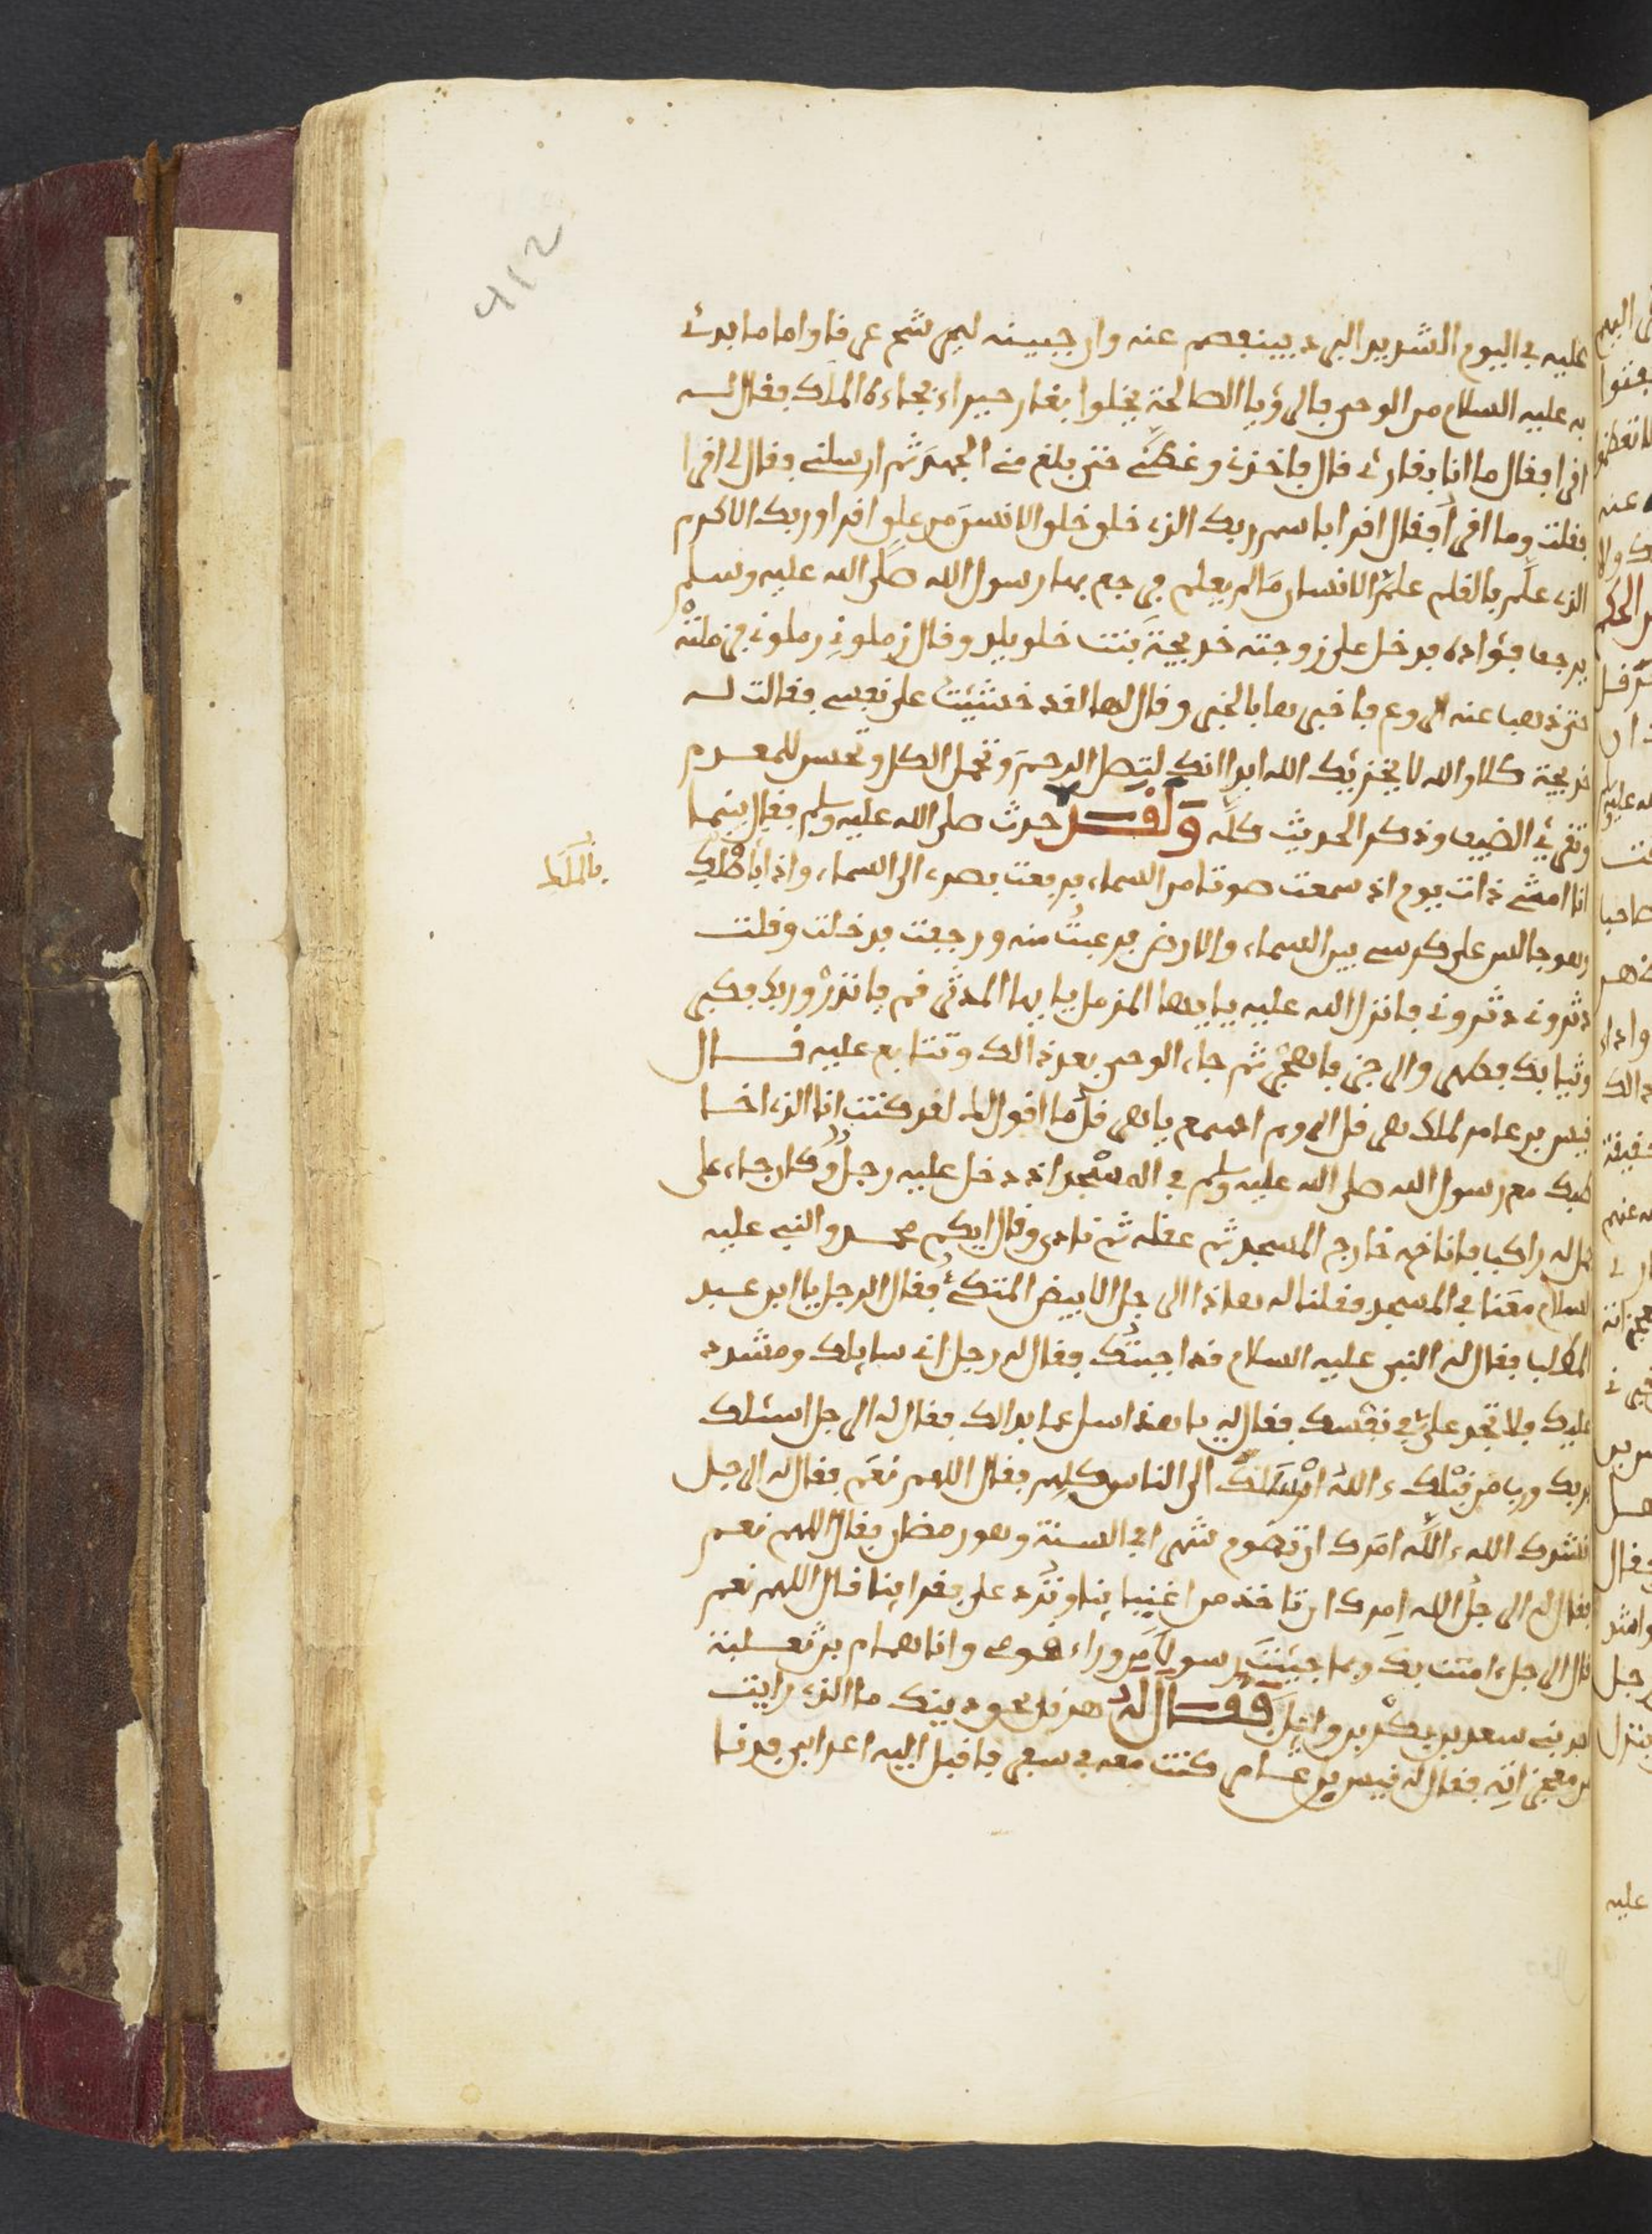 412
عليه في اليوم الشديد البرد فينفصم عنه وان جبينه ليرشح عرفا واما ما بدئ
به عليه السلام من الوحي فالرؤيا الصالحة يخلوا بغار حيراء فجاءه الملك فقال له
اقرا فقال ما انا بقارئ قال فاخذني وغطني حتى بلغ مني الجهد ثم ارسلني فقال لي اقرا
فقلت وما اقرأ فقال اقرا باسم ربك الذي خلق خلق الانسن من علق اقرا وربك الاكرم
الذي علم بالقلم علم الانسان ما لم يعلم فرجع بها رسول الله صلى الله عليه وسلم
يرجف فؤاده فدخل على زوجته خديجة بنت خلويلد وقال زملوني زملوني فزملته
حتى ذهب عنه الروع فاخبرها بالخبر وقال لها لقد خشيت على نفسي فقالت له
خديجة كلا والله لا يخزيك الله ابدا انك لتصل الرحم وتحمل الكل وتحسن للمعدم
وتقرئ الضيف وذكر الحديث كله وَلَقَد حدث صلى الله عليه وسلم فقال بينما
انا امشي ذات يوم اذ سمعت صوتا من السماء فرفعت بصري الى السماء واذا
بالملك
وهو جالس على كرسي بين السماء والارض فرعبت منه ورجعت فدخلت وقلت
دثروني دثروني فانزل الله عليه يايها المزمل يايها المدثر قم فانذر وربك فكبر
وثيابك فطهر والرجز فاهجر ثم جاء الوحي بعد ذالك وتتابع عليه قال
قيس بن عامر لملك هرقل الروم اسمع ياهرقل ما اقول لك لقد كنت انا الذي اخا
طبك مع رسول الله صلى الله عليه وسلم في المسجد اذ دخل عليه رجل وكان جاء على
جمل له راكبا فاناخه خارج المسجد ثم عقله ثم نادى وقال ايكم محمد والنبي عليه
السلام معنا في المسجد فقلنا له هاذا الرجل الابيض المتكئ فقال الرجل يا ابن عبد
المطلب فقال له النبي عليه السلام قد اجبتك فقال له رجل اني سايلك ومشدد
عليك ولا تجد علي في نفسك فقال له يا هذا سل عما بدالك فقال له الرجل اسئلك
بربك ورب من قبلك ءالله ارسلك الى الناس كلهم فقال اللهم نعم فقال له الرجل
انشدك الله ءالله امرك ان تصوم شهرا في السنة وهو رمضان فقال اللهم نعم
فقال له الرجل ءالله امرك ان تاخذ من اغنيائنا وترد على فقرائنا قال اللهم نعم
قال الرجل ءامنت بك وبما جيئت رسولا من وراء قومي وانا همام بن ثعلبة
من بني سعد بن بكر بن وايل فقال له هرقل بحق دينك ما الذي رايت
من معجزاته فقال له قيس بن عامر كنت معه في سفر فاقبل اليه اعرابي فدنا